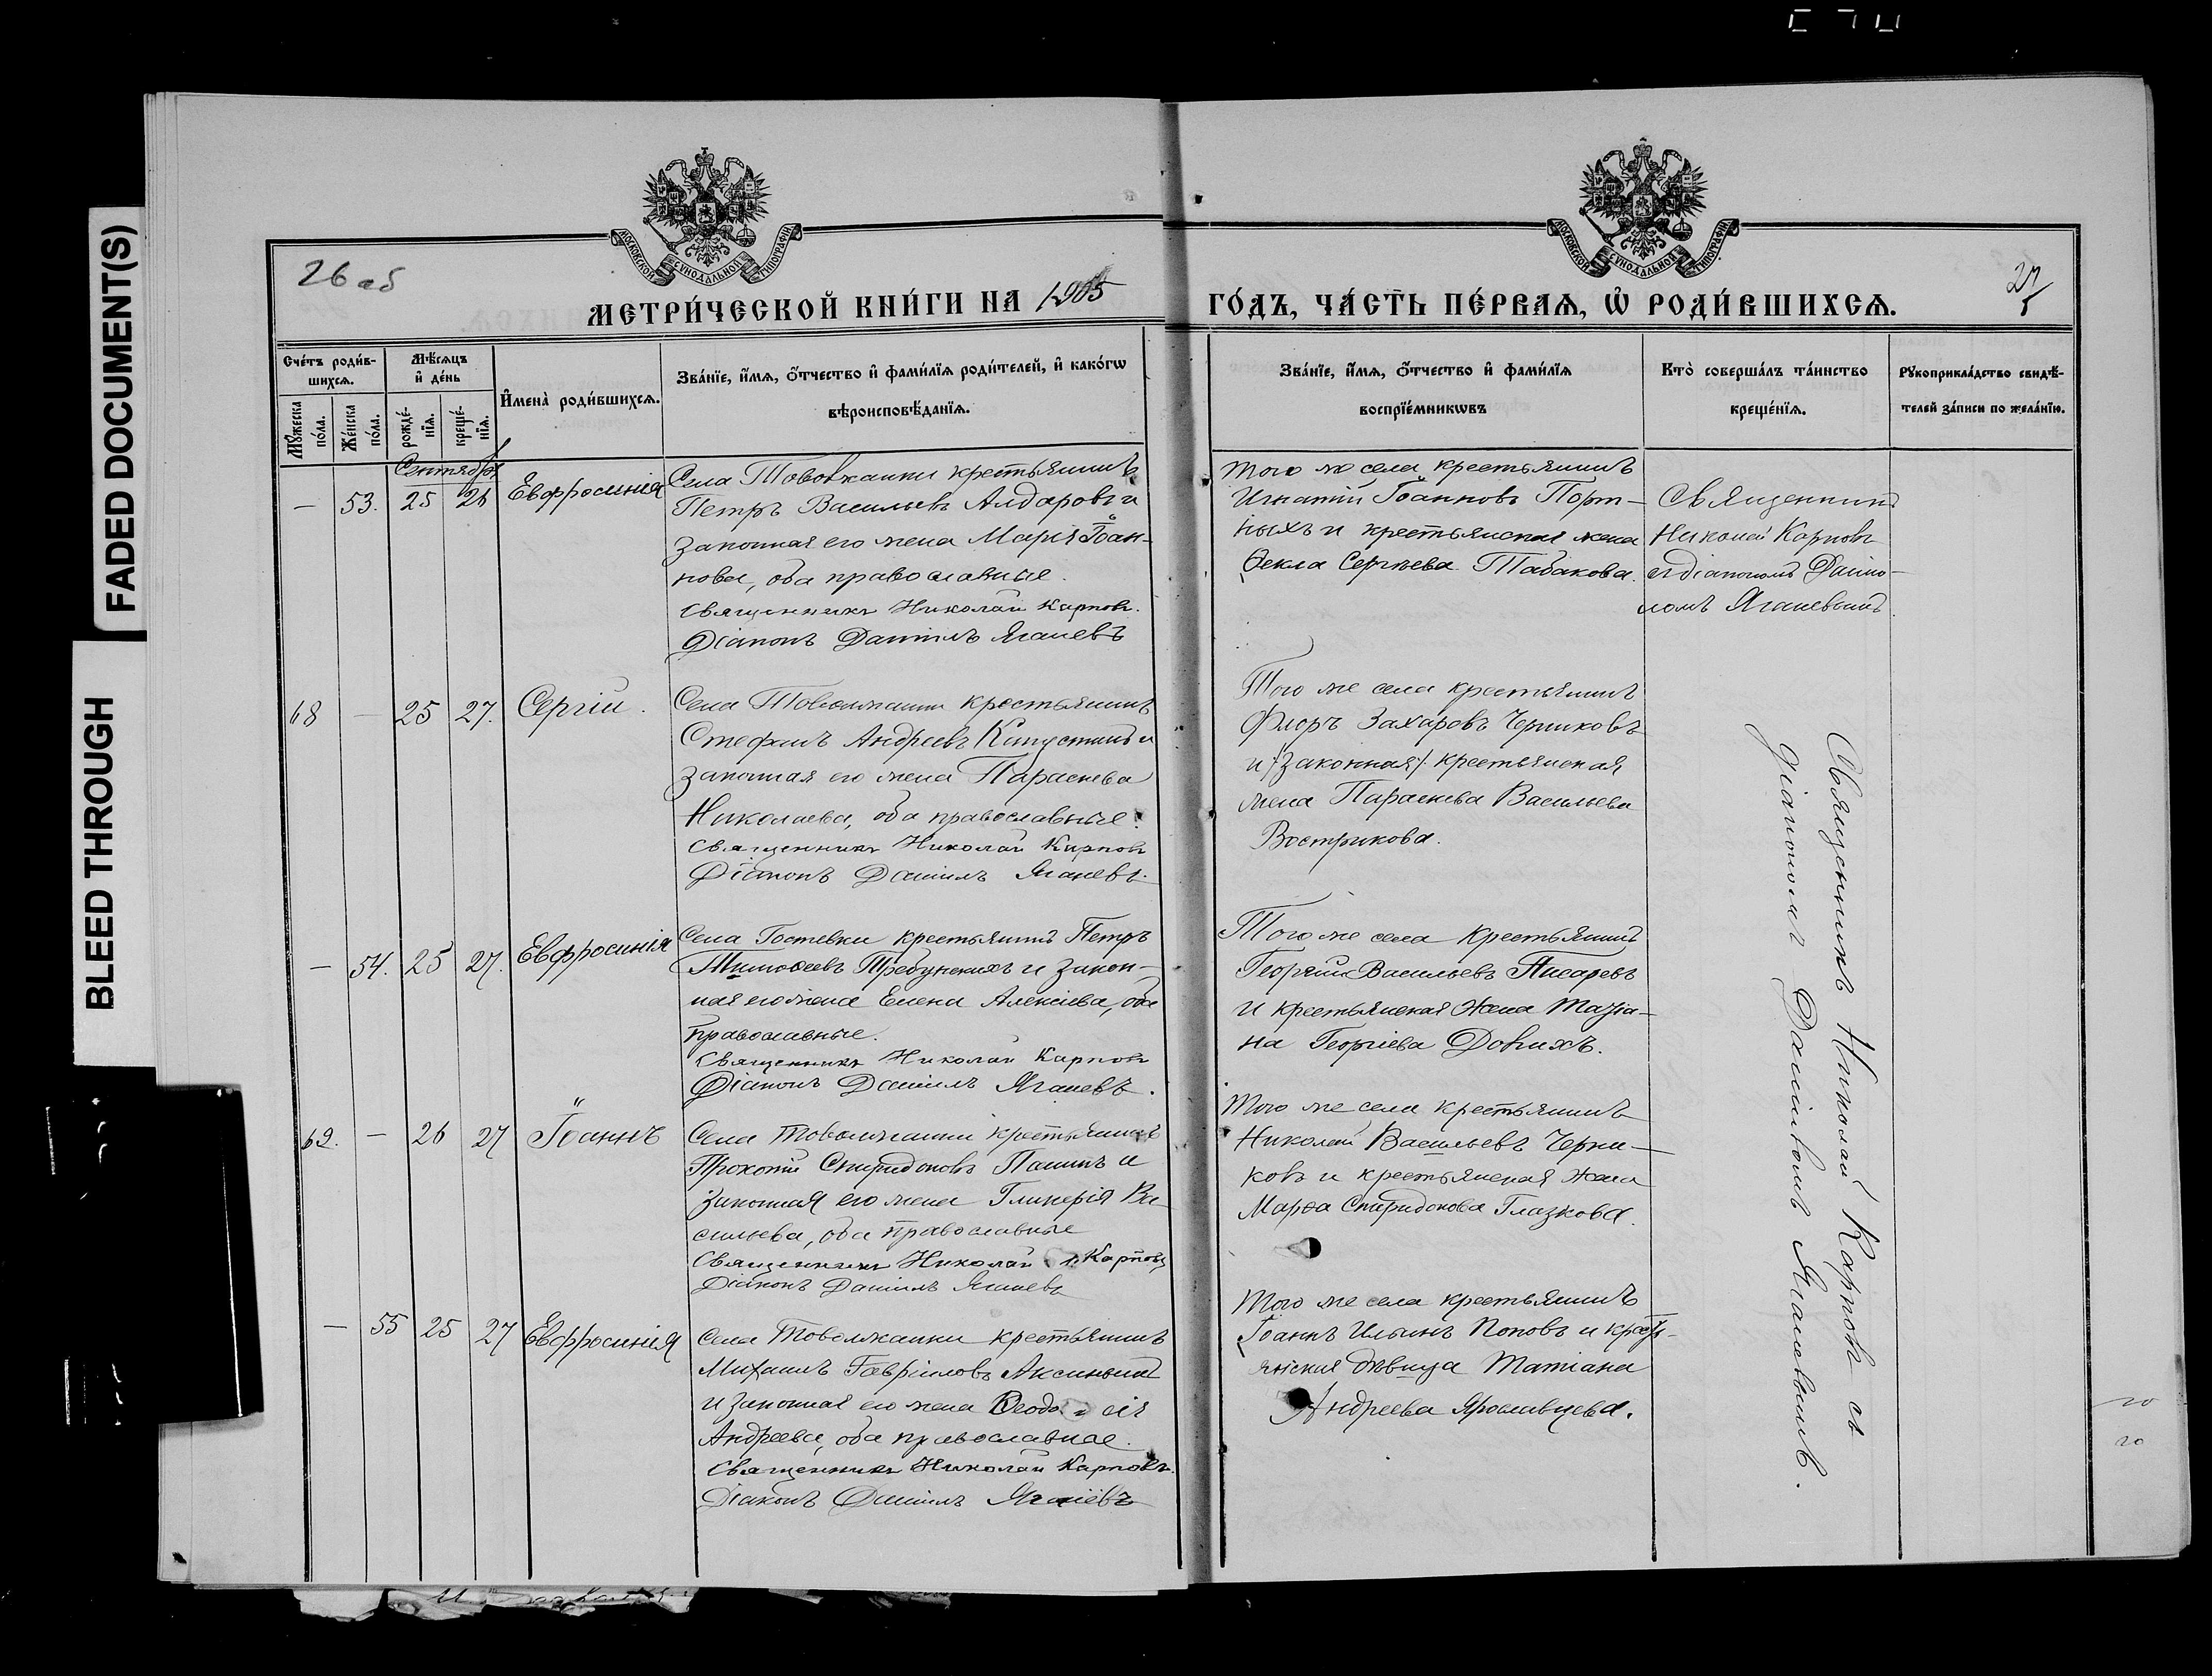 FADED DOCUMENT(S)
BLEED THROUGH
26 об
27
МОСКОВСКОЙ СУНОДАЛЬНОЙ ТИПОГРАФІИ
МОСКОВСКОЙ СУНОДАЛЬНОЙ ТИПОГРАФІИ
МЕТРИ́ЧЕСКОЙ КНИ́ГИ НА 1905
ГО́ДЪ, ЧА́СТЬ ПЕ́РВАѦ, Ѡ҆ РОДИ́ВШИХСѦ.
Сче́тъ роди́в-
шихсѧ.
Мꙋ́жеска
по́ла.
Же́нска
по́ла.
Мѣ́сѧцъ
и҆ де́нь
рожде́-
нїѧ.
креще́-
нїѧ.
И҆мена̀ роди́вшихсѧ.
Зва́нїе, и҆́мѧ, ѻ҆́тчество и҆ фами́лїѧ роди́телей, и҆ како́гѡ
вѣроисповѣ́данїѧ.
Зва́нїе, и҆́мѧ, ѻ҆́тчество и҆ фами́лїѧ
воспрїе́мникѡвъ
Кто̀ соверша́лъ та́инство
креще́нїѧ.
Рꙋкоприкла́дство свидѣ́-
телей за́писи по жела́нїю.
Сентябрь
— 53. 25 26 Евфросинія
Села Товолжанки крестьянинъ
Петръ Васильевъ Алдаровъ и
законная его жена Марія Іоан-
нова, оба православные.
Священникъ Николай Карповъ.
Діаконъ Даніилъ Яганевъ
Того же села крестьянинъ
Игнатій Іоанновъ Порт-
ныхъ и крестьянская жена
Ѳекла Сергѣева Табакова.
Священникъ
Николай Карповъ
съ діакономъ Дании-
ломъ Яганевымъ
68 — 25 27. Сергій.
Села Товолжанки крестьянинъ
Стефанъ Андреевъ Капустинъ и
законная его жена Параскева
Николаева, оба православные.
Священникъ Николай Карповъ
Діаконъ Даніилъ Яганевъ.
Того же села крестьянинъ
Флоръ Захаровъ Черниковъ
и /законная/ крестьянская
жена Параскева Васильева
Вострикова.
— 54. 25 27. Евфросинія
Села Гостевки крестьянинъ Петръ
Тимоѳеевъ Требунскихъ и закон-
ная его жена Елена Алексіева, оба
православные.
Священникъ Николай Карповъ
Діаконъ Даніилъ Яганевъ.
Того же села крестьянинъ
Георгій Васильевъ Писаревъ
и крестьянская жена
на Георгіева Довихъ.
69. — 26 27 Іоаннъ
Села Товолжанки крестьянинъ
Прокопій Спиридоновъ Панинъ и
законная его жена Гликерія Ва
сильева, оба православные
Священникъ Николай Карповъ
Діаконъ Даніилъ Яганевъ
Того же села крестьянинъ
Николай Васильевъ Черни-
ковъ и крестьянская жена
Марѳа Спиридонова Глазкова.
— 55 25 27 Евфросинія
Села Товолжанки крестьянинъ
Михаилъ Гавріиловъ Аксиньинъ
и законная его жена Ѳеодосія
Андреева, оба православные.
Священникъ Николай Карповъ.
Діаконъ Даніилъ Яганевъ
Того же села крестьянинъ
Іоаннъ Ильинъ Поповъ и кресть-
янская дѣвица Татіана
Андреева Ярославцева.
Священникъ Николай Карповъ съ
діакономъ Даніиломъ Яганевымъ.